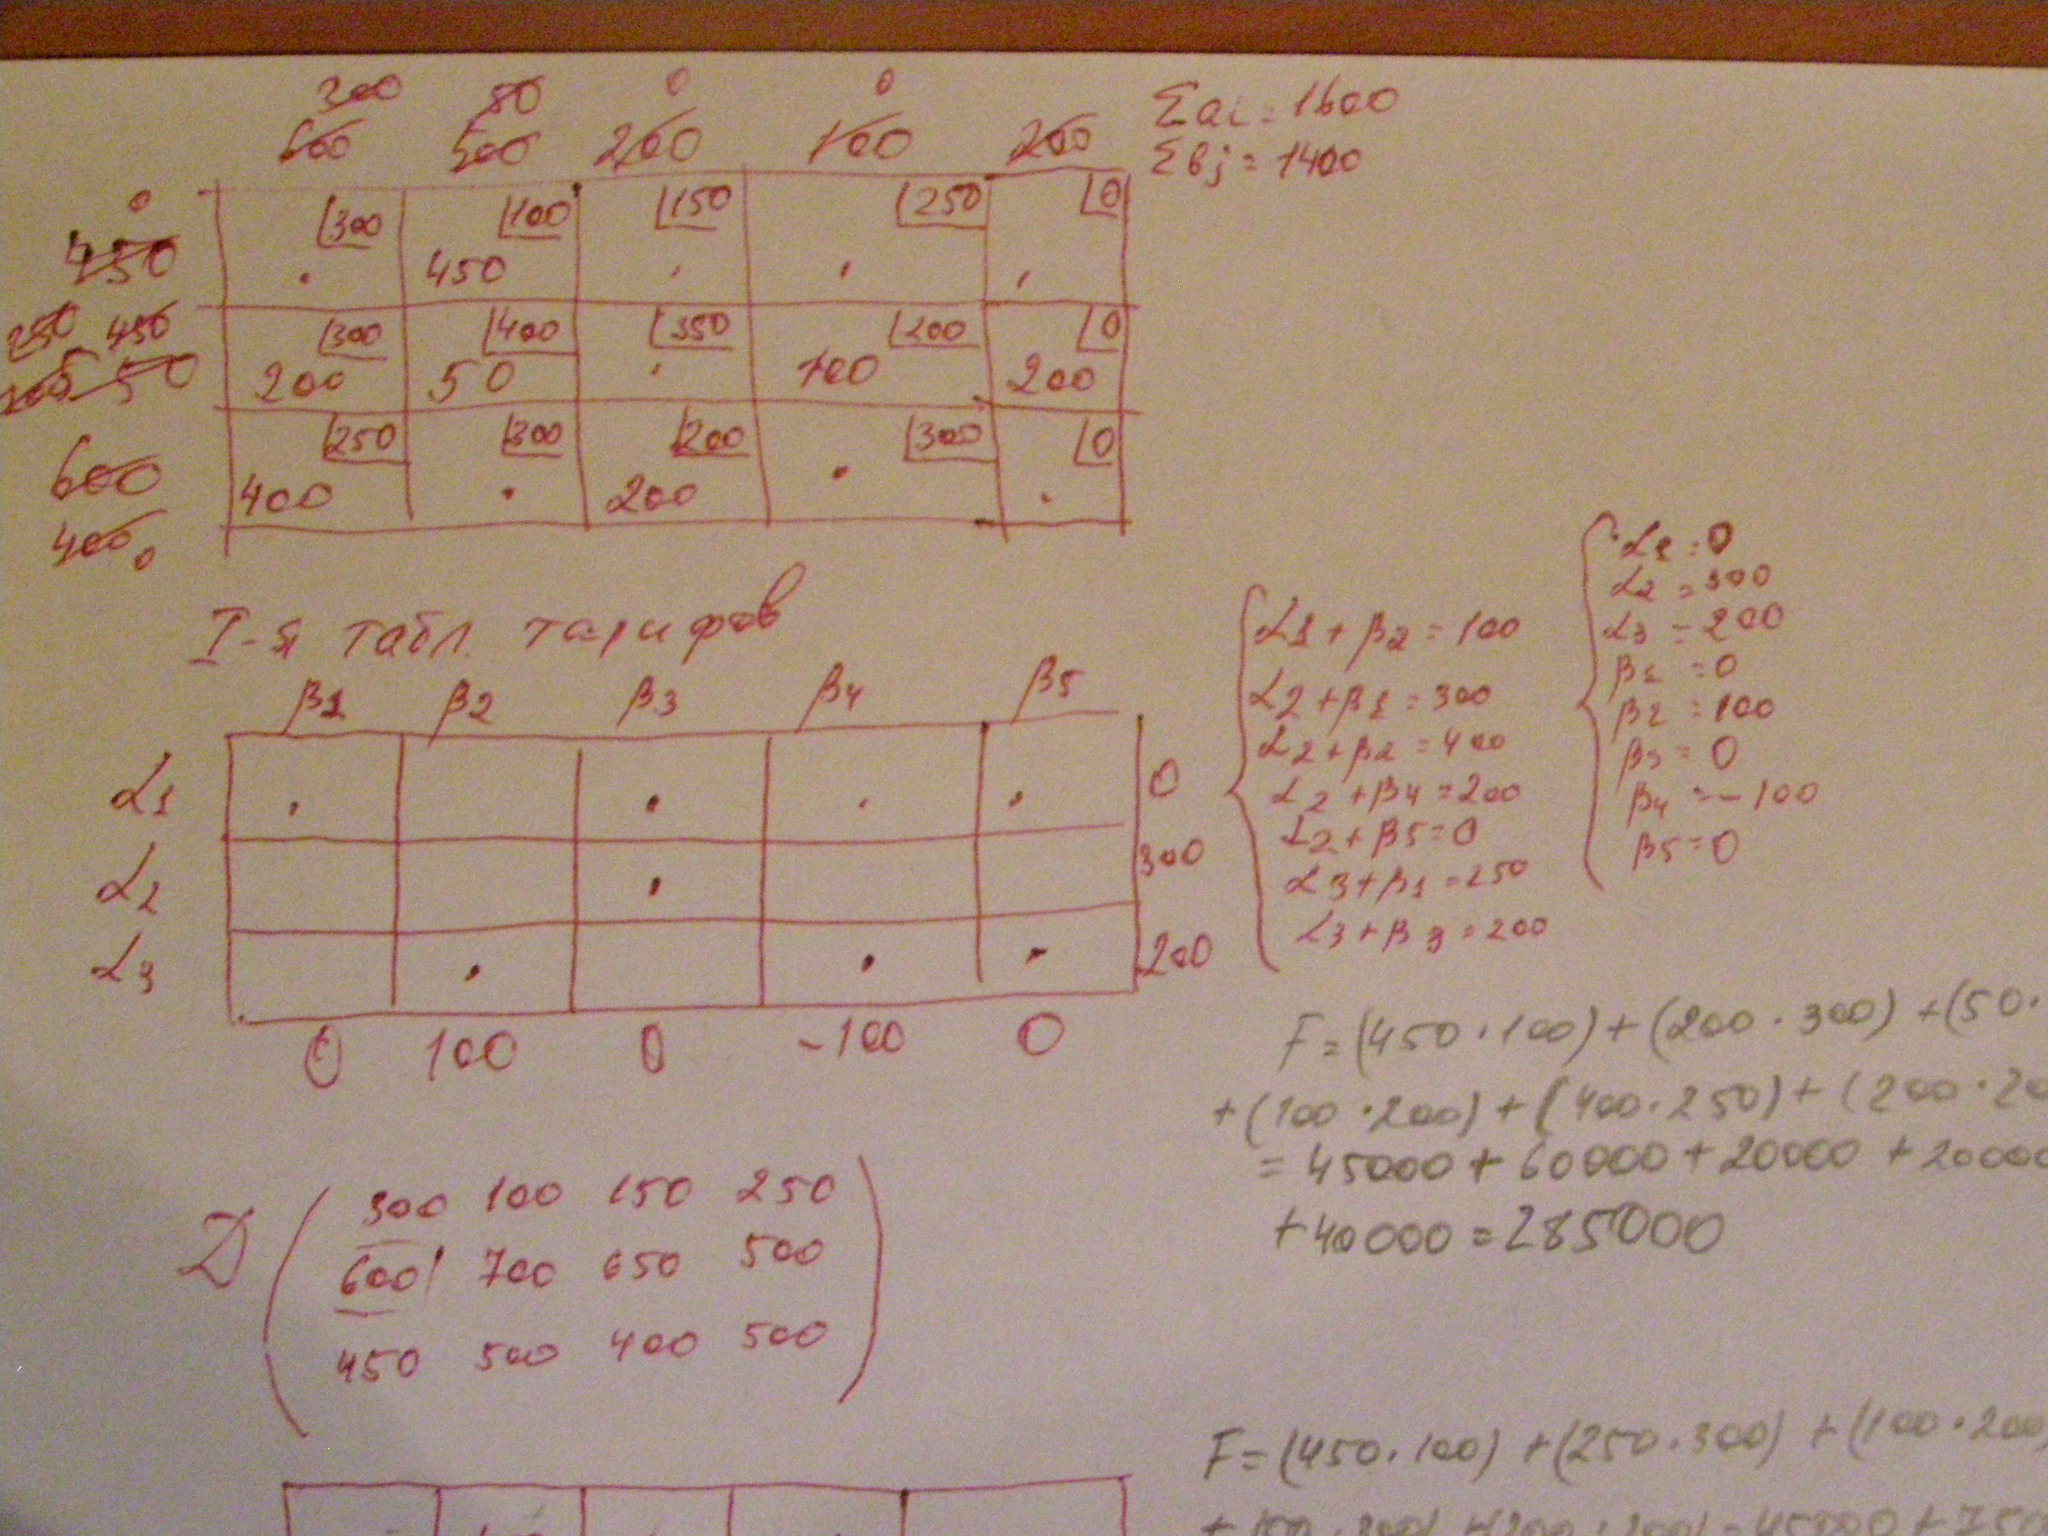 300 50 0 0
600 500 200 100 200
Σai = 1600
Σbj = 1400
0
450
300 100 150 250 0
. 450 . . .
250 450
550
300 400 350 200 0
200 50 . 100 200
600
250 300 200 300 0
400 . 200 . .
400 0
I-я табл. тарифов
β1 β2 β3 β4 β5
α1 . . . . 0
α2 . 300
α3 . . . 200
0 100 0 -100 0
α1 + β2 = 100
α2 + β1 = 300
α2 + β2 = 400
α2 + β4 = 200
α2 + β5 = 0
α3 + β1 = 250
α3 + β3 = 200
α1 = 0
α2 = 300
α3 = 200
β1 = 0
β2 = 100
β3 = 0
β4 = -100
β5 = 0
F = (450 · 100) + (200 · 300) + (50 ·
+ (100 · 200) + (400 · 250) + (200 · 20
= 45000 + 60000 + 20000 + 20000
+ 40000 = 285000
D
300 100 150 250
600 700 650 500
450 500 400 500
F = (450 · 100) + (250 · 300) + (100 · 200)